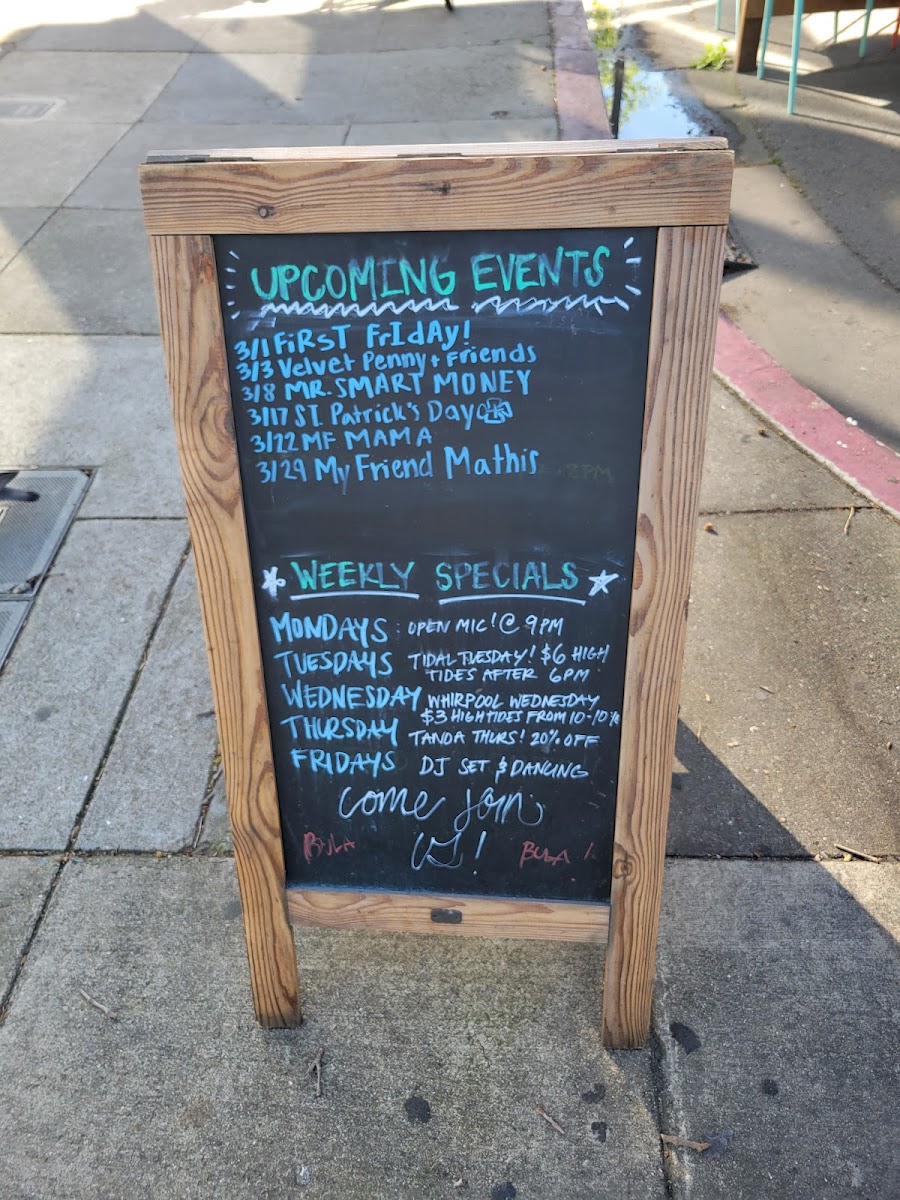 UPCOMING EVENTS
3/1 FiRST FrIdAy!
3/3 Velvet Penny + Friends
3/8 MR. SMART MONEY
3/17 ST. Patrick's Day
3/22 MF MAMA
3/29 My Friend Mathis
8PM
WEEKLY SPECIALS
MONDAYS : OPEN MIC! @ 9PM
TUESDAYS TIDAL TUESDAY! $6 HIGH
TIDES AFTER 6PM
WEDNESDAY WHIRPOOL WEDNESDAY
$3 HIGHTIDES FROM 10-10
THURSDAY TANOA THURS! 20% OFF
FRIDAYS DJ SET & DANCING
come join
US!
BULA BULA!